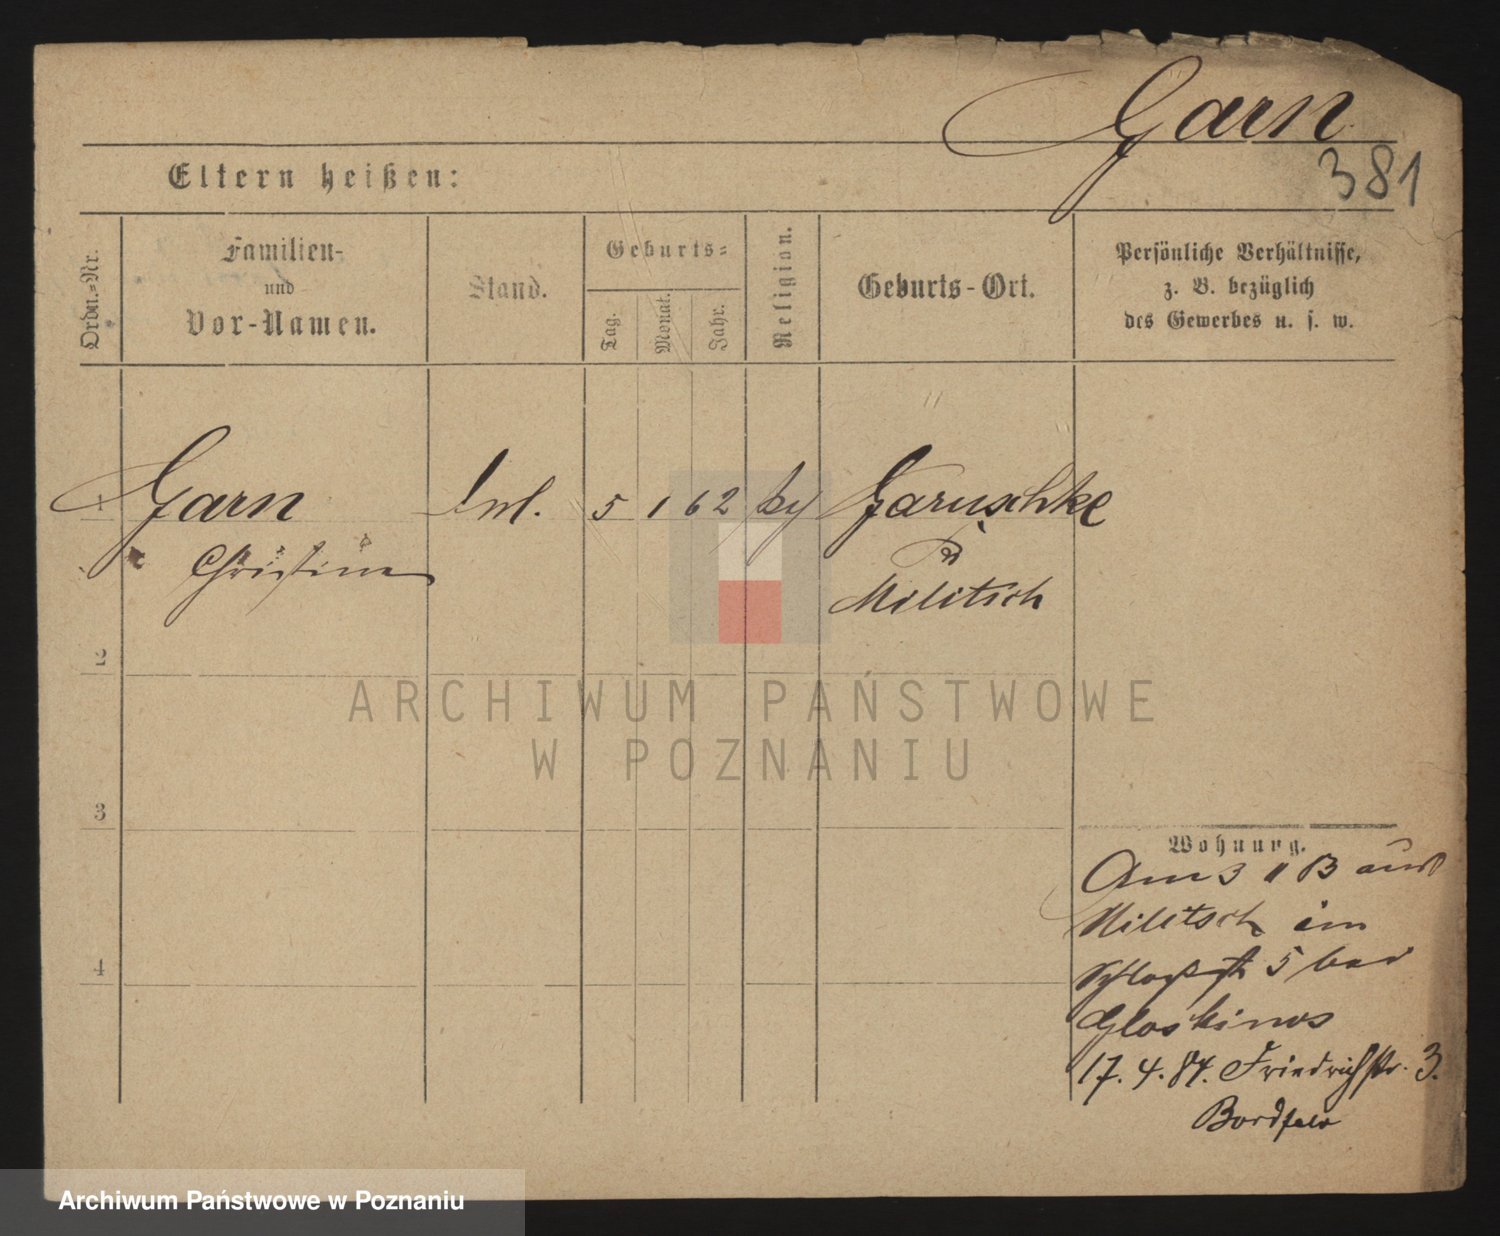 Garn
381
Eltern heißen:
Ordn.=Nr.
Familien-
und
Vor-Namen.
Stand.
Geburts=
Tag.
Monat.
Jahr.
Religion.
Geburts-Ort.
Persönliche Verhältnisse,
z. B. bezüglich
des Gewerbes u. s. w.
1 Garn 5 1 62 Garuschke
Christine
Militsch
2
ARCHIWUM PAŃSTWOWE
W POZNANIU
3
Wohnung.
Am 3 11 83 aus
Militsch in
5 bei
4
17.4.84. Friedrichstr. 3.
Archiwum Państwowe w Poznaniu